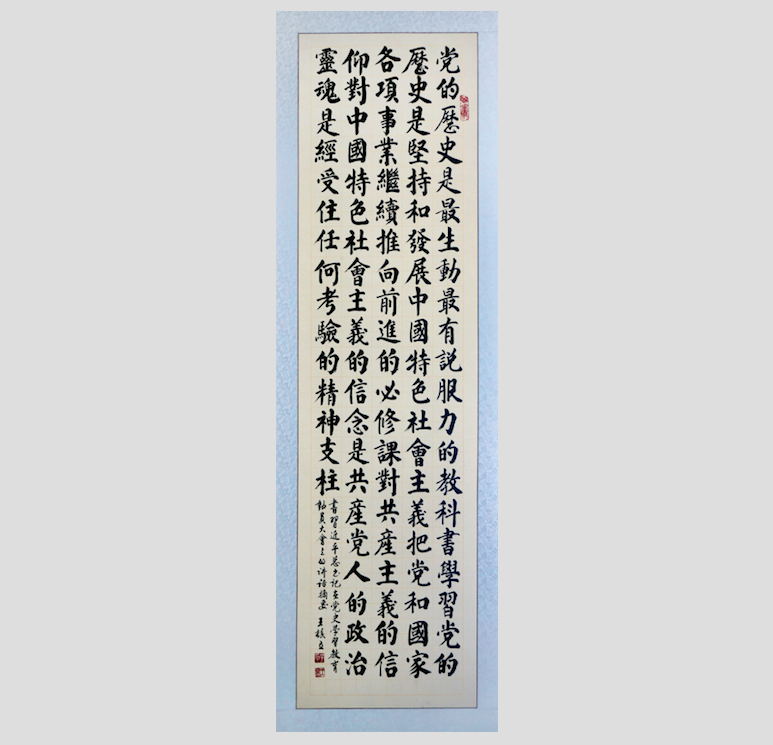 党的歷史是最生動最有説服力的教科書學習党的
歷史是堅持和發展中國特色社會主義把党和國家
各項事業繼續推向前進的必修課對共產主義的信
仰對中國特色社會主義的信念是共產党人的政治
靈魂是經受住任何考驗的精神支柱
書習近平總书記在党史學習教育
動員大會上的讲話摘要